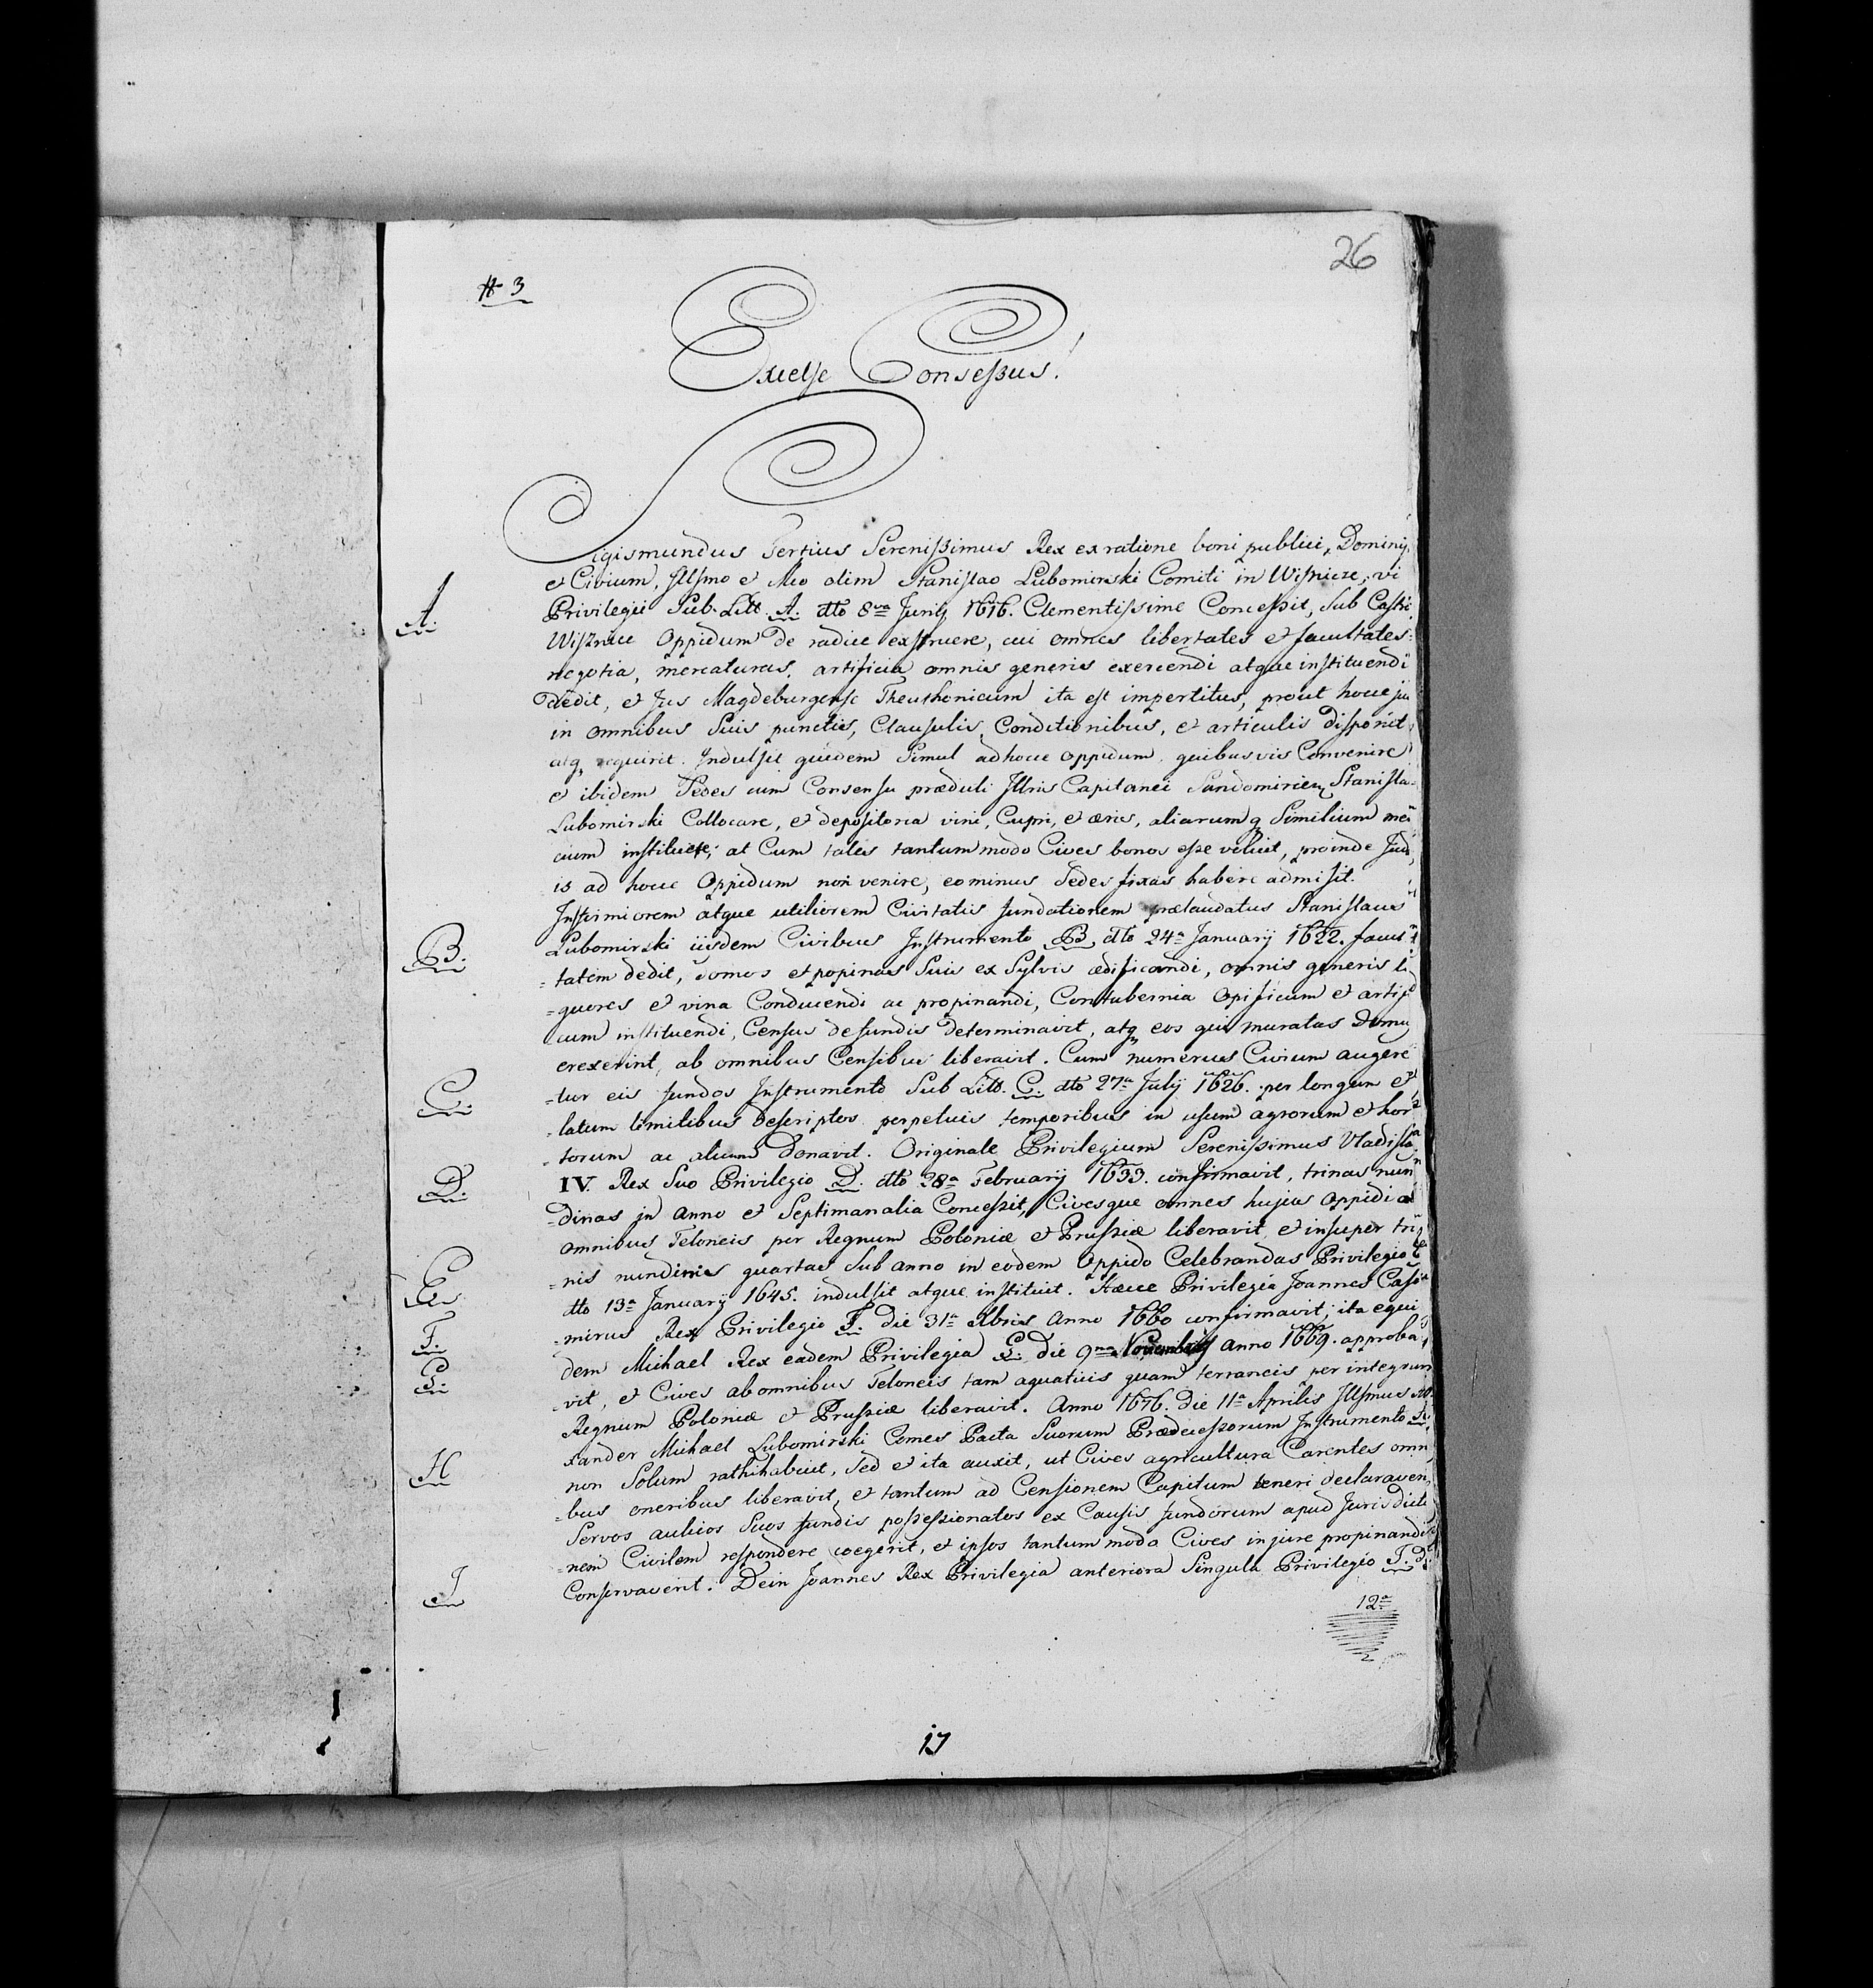 26
# 3
Excelse Consessus!
Sigismundus Tertius Serenissimus Rex ex ratione boni publici, Dominij
et Civium, Illsmo et Mco olim Stanislao Lubomirski Comiti in Wisnicze, vi
A. Privilegii Sub Litt. A. dtto 8va Junij 1616. Clementissime Concessit, Sub Castri
Wisznice Oppidum de radice exstruere, cui omnes libertates et facultates
negotia, mercaturas, artificia omnis generis exercendi atque instituendi
dedit, et Jus Magdeburgense Theuthonicum ita est impertitus, prout hocce ju
in omnibus Suis punctis, Clausulis, Conditionibus, et articulis disponit
atq requirit. Indulsit quidem Simul ad hocce oppidum quibusvis Convenire
et ibidem Sedes cum Consensu præduli Illris Capitanei Sandomirien Stanisla
Lubomirski Collocare, et depositoria vini, Cupri, et æris, aliarumq Similium mer
cium instituere; at Cum tales tantummodo Cives bonos esse veluit, proinde Jud
is ad hocce Oppidum non venire, eominus Sedes fixas habere admisit.
Insfirmiorem atque utiliorem Civitatis fundationem prælaudatus Stanislaus
B. Lubomirski iisdem Civibus Instrumento B. dtto 24a January 1622. facul
=tatem dedit, domos et popinas Suis ex Sylvis ædificandi, omnis generis li
=quores et vina Conducendi ac propinandi, Contubernia Opificum et artifi
cum instituendi, Census de fundis determinavit, atq eos qui muratas domu
erexerint, ab omnibus Censibus liberavit. Cum numerus Civium augere
C. =tur eis fundos Instrumento Sub Litt. C. dto 27a July 1626. per longum et
=latum limitibus descriptos perpetuis temporibus in usum agrorum et hor
=torum ac alium donavit. Originale Privilegium Serenissimus Vladisla
D. IV. Rex Suo Privilegio D. dtto 28a February 1633. confirmavit, trinas nun
=dinas in anno et Septimanalia Concessit, Civesque omnes hujus Oppidi a
omnibus Teloneis per Regnum Poloniæ et Prussiæ liberavit, et insuper tri
=nis nundinis quartas Sub anno in eodem Oppido Celebrandas Privilegio E
E. dtto 13a January 1645. indulsit atque instituit. Hæcce Privilegia Joannes Casi
F. =mirus Rex Privilegio F. die 31a Xbris Anno 1660 confirmavit, ita equi
G. dem Michael Rex eadem Privilegia G. die 9na Novembris anno 1669. approba
vit, et Cives ab omnibus Teloneis tam aquaticis quam terraneis per integrum
Regnum Poloniæ et Prussiæ liberavit. Anno 1676. die 11a Aprilis Illsmus
xander Michael Lubomirski Comes Pacta Suorum Prædecessorum Instrumento H
H non Solum rathihabuit, Sed et ita auxit, ut Cives agricultura Carentes omni
=bus oneribus liberavit, et tantum ad Censionem Capitum teneri declaraven
Servos aulicos Suos fundis possessionatos ex Causis fundorum apud Jurisdicti
=nem Civilem respondere coegerit, et ipsos tantummodo Cives in jure propinandi
I Conservaverit. Dein Joannes Rex Privilegia anteriora Singula Privilegio I. d
12a
17